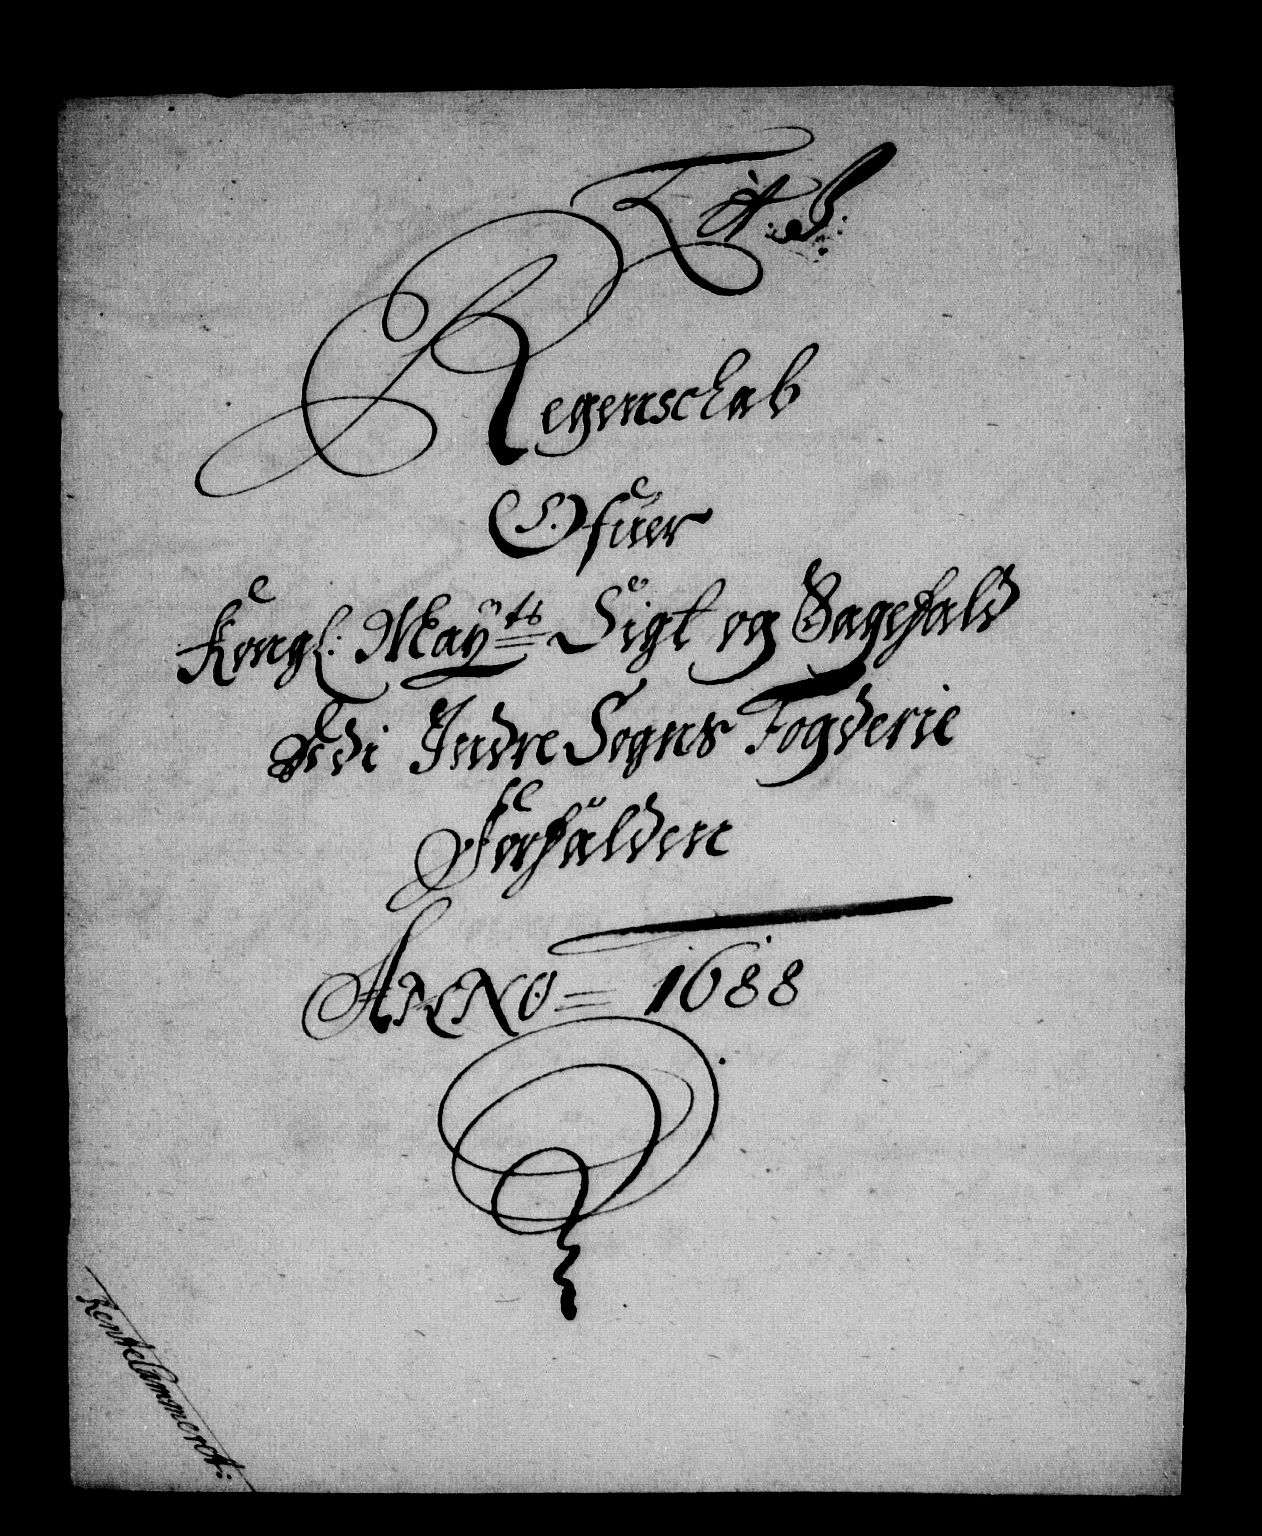 Lit. B.
Regenschab
Ofuer
Kongl: May:ts Sigt og Sagefald
Udi Indre Sogns Fogderie
Forfalden
ANNO = 1688
Rentecammeret: